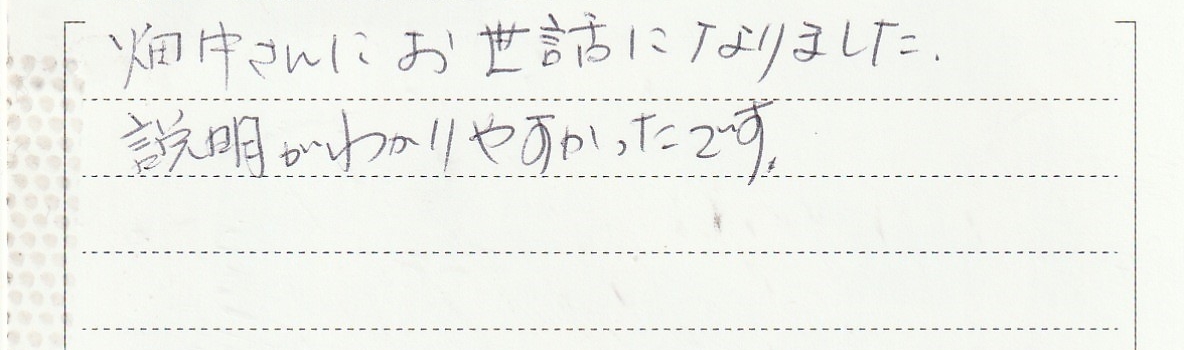 畑中さんにお世話になりました.
説明がわかりやすかったです.